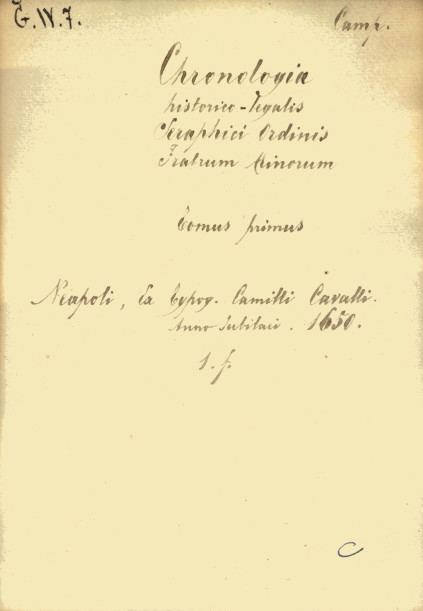 G.IV.7.
Camp.
Chronologia
historico-legalis
Seraphici Ordinis
Fratrum Minorum
Tomus primus
Neapoli, Ex Typog. Camilli Cavalli.
Anno Jubilaei. 1650.
1. f.
C